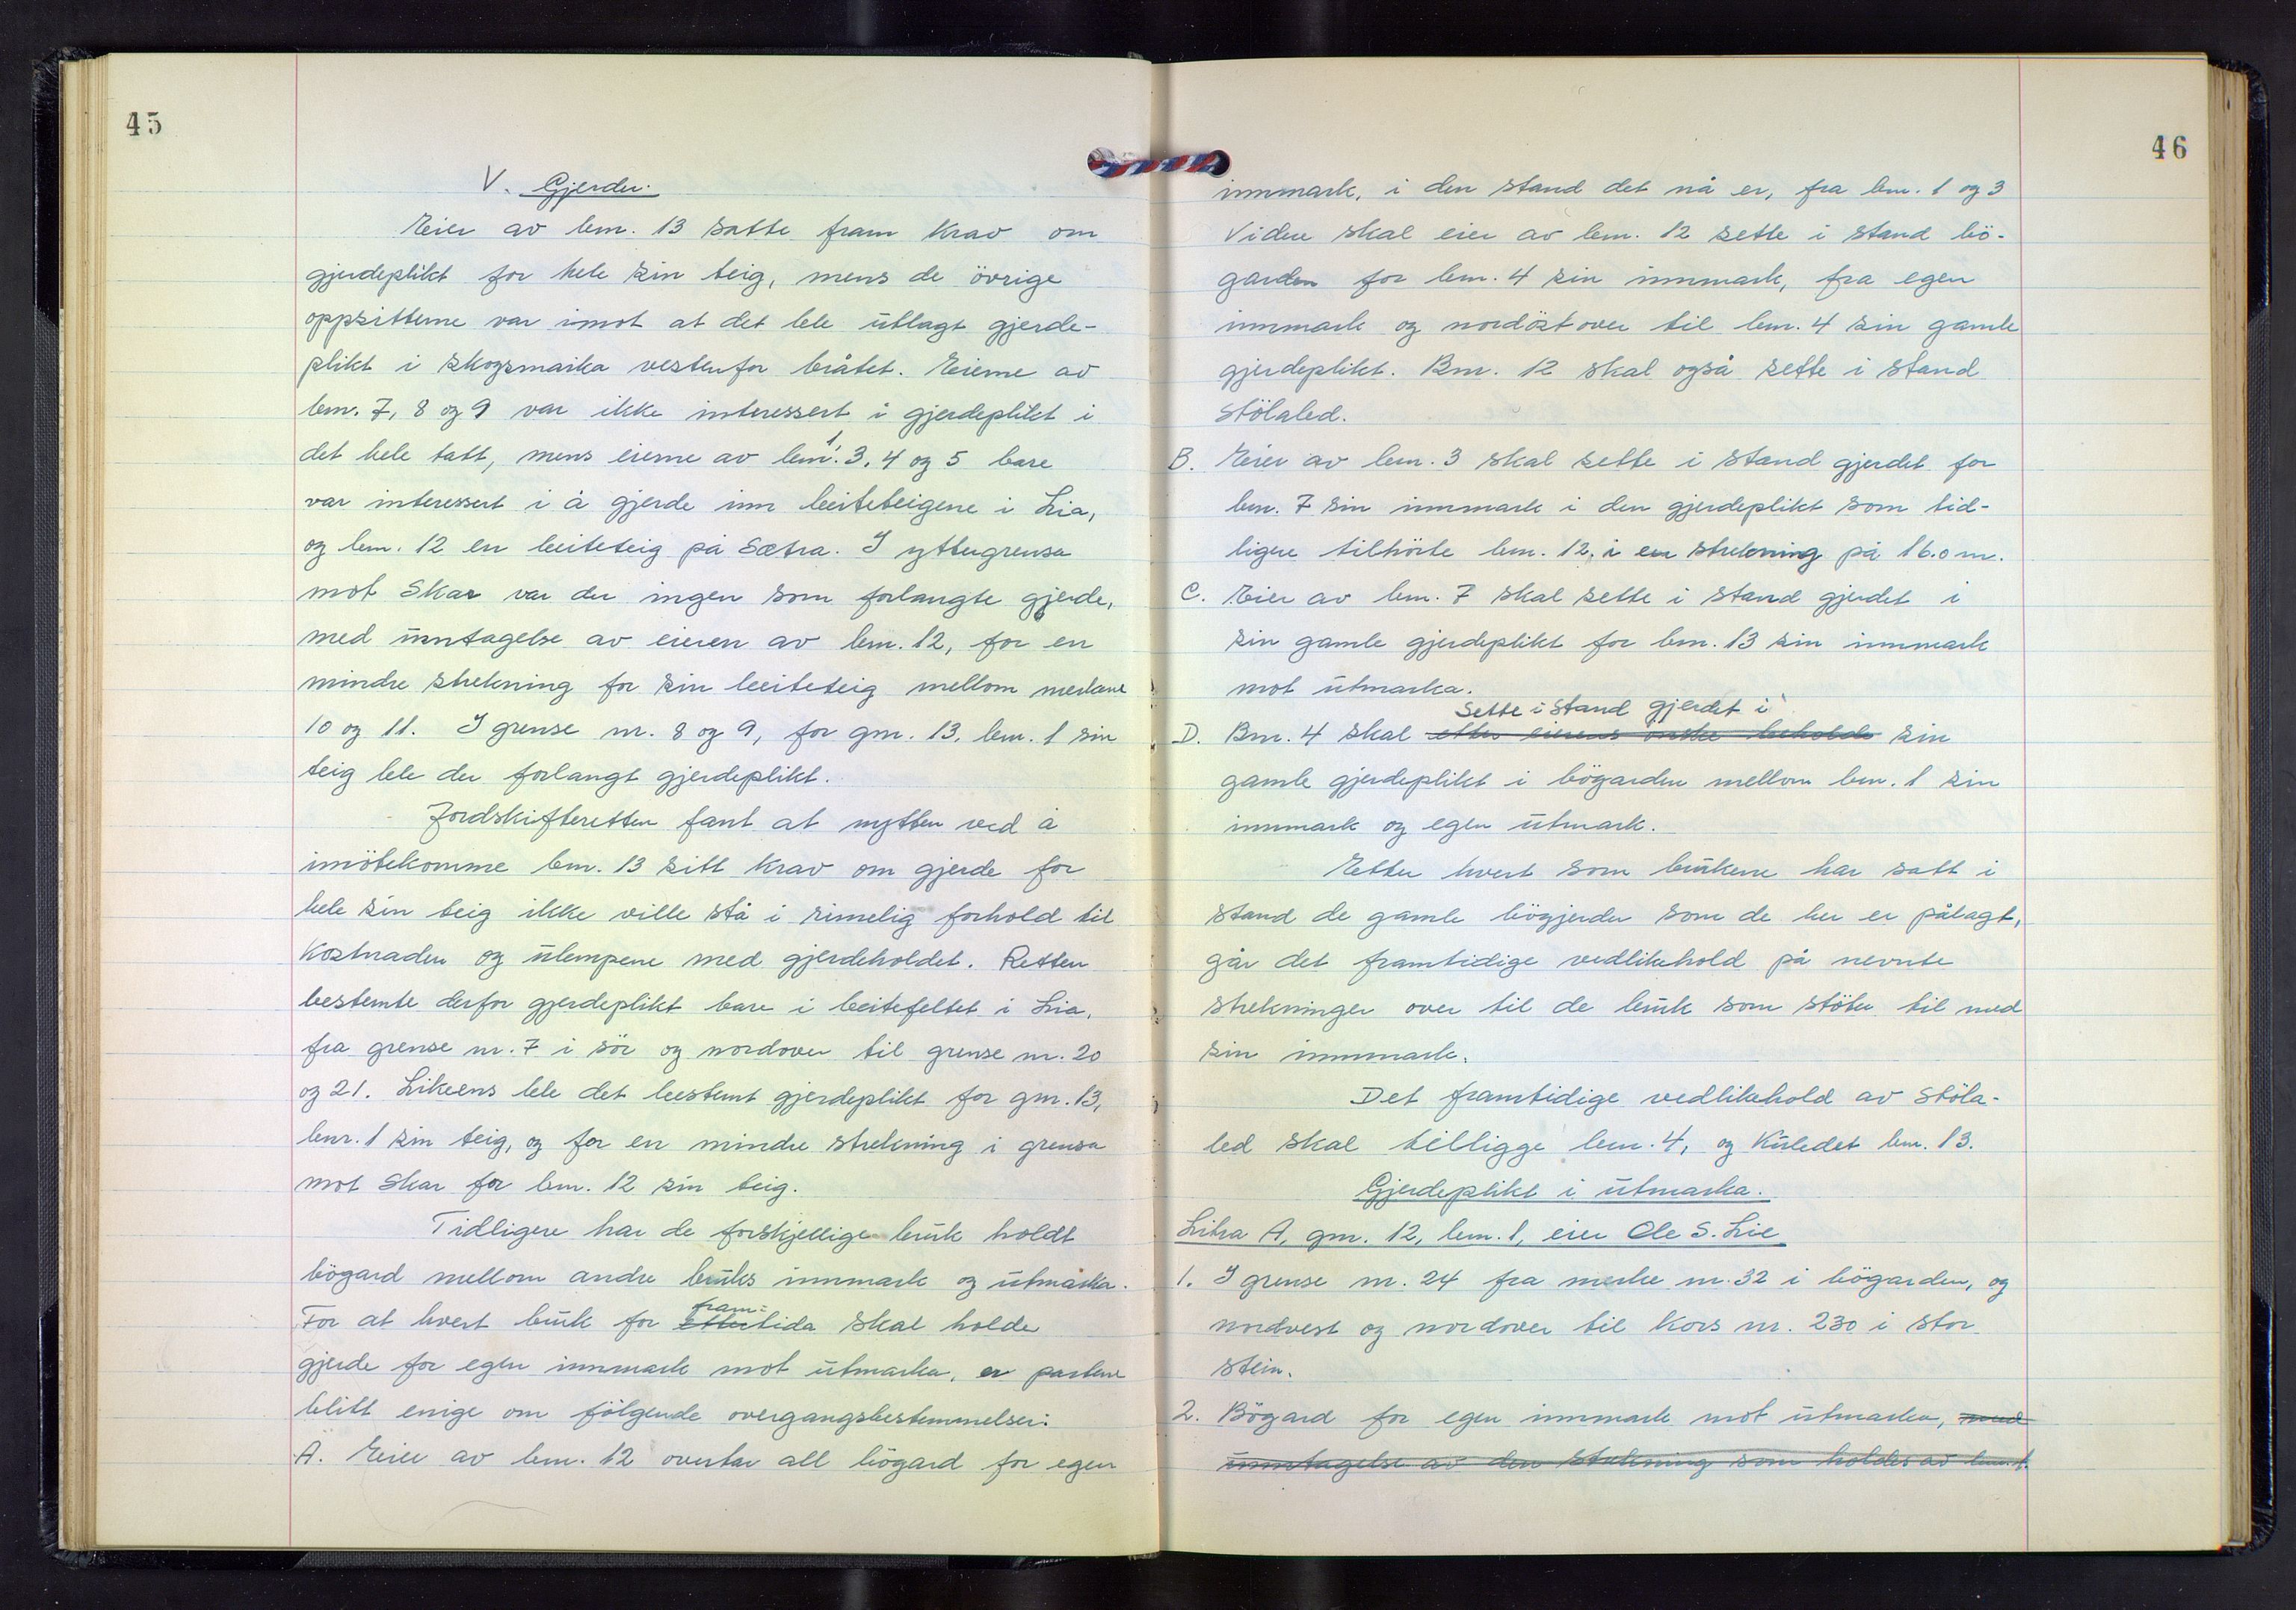 45
V. Gjerder.
Eier av bnr. 13 satte fram krav om
gjerdeplikt for hele sin teig, mens de övrige
oppsitterne var imot at det ble utlagt gjerde-
plikt i skogsmarka vestenfor bråtet. Eierne av
bnr. 7, 8 og 9 var ikke interessert i gjerdeplikt i
det hele tatt, mens eierne av bnr. 1, 3, 4 og 5 bare
var interessert i å gjerde inn beiteteigene i Lia,
og bnr. 12 en beiteteig på Sætra. I yttergrensa
mot Skar var der ingen som forlangte gjerde,
med unntagelse av eieren av bnr. 12, for en
mindre strekning for sin beiteteig mellom merkene
10 og 11. I grense nr. 8 og 9, for gnr. 13, bnr. 1 sin
teig ble der forlangt gjerdeplikt.
Jordskifteretten fant at nytten ved å
imötekomme bnr. 13 sitt krav om gjerde for
hele sin teig ikke ville stå i rimelig forhold til
kostnaden og ulempene med gjerdeholdet. Retten
bestemte derfor gjerdeplikt bare i beitefeltet i Lia,
fra grense nr. 7 i sör og nordover til grense nr. 20
og 21. Likeens ble det bestemt gjerdeplikt for gnr. 13,
bnr. 1 sin teig, og for en mindre strekning i grensa
mot Skar for bnr. 12 sin teig.
Tidligere har de forskjellige bruk holdt
bögard mellom andre bruks innmark og utmarka.
For at hvert bruk for etter fram-tida skal holde
gjerde for egen innmark mot utmarka, er partene
blitt enige om fölgende overgangsbestemmelser:
A. Eier av bnr. 12 overtar all bögard for egen
46
innmark, i den stand det nå er, fra bnr. 1 og 3
Videre skal eier av bnr. 12 sette i stand bö-
garden for bnr. 4 sin innmark, fra egen
innmark og nordöstover til bnr. 4 sin gamle
gjerdeplikt. Bnr. 12 skal også sette i stand
Stölaled.
B. Eier av bnr. 3 skal sette i stand gjerdet for
bnr. 7 sin innmark i den gjerdeplikt som tid-
ligere tilhörte bnr. 12, i en strekning på 16.0 m.
C. Eier av bnr. 7 skal sette i stand gjerdet i
sin gamle gjerdeplikt for bnr. 13 sin innmark
mot utmarka.
sette i stand gjerdet i
D. Bnr. 4 skal etter eierens önske beholde sin
gamle gjerdeplikt i bögarden mellom bnr. 1 sin
innmark og egen utmark.
Etter hvert som brukene har satt i
stand de gamle bögjerder som de her er pålagt,
går det framtidige vedlikehold på nevnte
strekninger over til de bruk som stöter til med
sin innmark.
Det framtidige vedlikehold av Stöla-
led skal tilligge bnr. 4, og Kuledet bnr. 13.
Gjerdeplikt i utmarka.
Litra A, gnr. 12, bnr. 1, eier Ole S. Lie
1. I grense nr. 24 fra merke nr. 32 i bögarden, og
nordvest og nordover til kors nr. 230 i stor
stein.
2. Bögard for egen innmark mot utmarka, med
unntagelse av den strekning som holdes av bnr. 4.